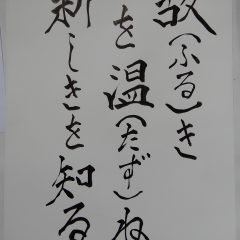 故(ふる)き
を温(たずね
新しきを知る